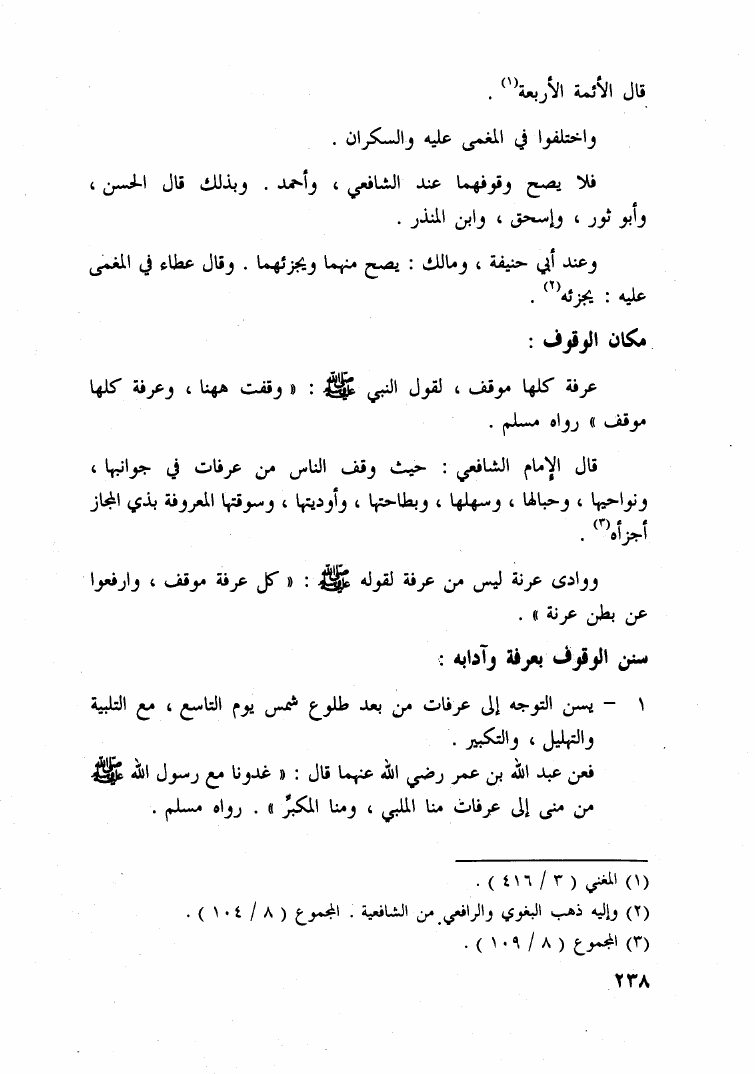 قال الأئمة الأربعة(١) .
واختلفوا في المغمى عليه والسكران .
فلا يصح وقوفهما عند الشافعي ، وأحمد . وبذلك قال الحسن ،
وأبو ثور ، وإسحق ، وابن المنذر .
وعند أبي حنيفة ، ومالك : يصح منهما ويجزئهما . وقال عطاء في المغمى
عليه : يجزئه(٢) .
مكان الوقوف :
عرفة كلها موقف ، لقول النبي ﷺ : « وقفت ههنا ، وعرفة كلها
موقف » رواه مسلم .
قال الإمام الشافعي : حيث وقف الناس من عرفات في جوانبها ،
ونواحيها ، وجبالها ، وسهلها ، وبطاحتها ، وأوديتها ، وسوقتها المعروفة بذي المجاز
أجزأه(٣) .
ووادى عرنة ليس من عرفة لقوله ﷺ : « كل عرفة موقف ، وارفعوا
عن بطن عرنة » .
سنن الوقوف بعرفة وآدابه :
١ – يسن التوجه إلى عرفات من بعد طلوع شمس يوم التاسع ، مع التلبية
والتهليل ، والتكبير .
فعن عبد الله بن عمر رضي الله عنهما قال : « غدونا مع رسول الله ﷺ
من منى إلى عرفات منا الملبي ، ومنا المكبرُّ » . رواه مسلم .
(١) المغني ( ٣ / ٤١٦ ) .
(٢) وإليه ذهب البغوي والرافعي من الشافعية . المجموع ( ٨ / ١٠٤ ) .
(٣) المجموع ( ٨ / ١٠٩ ) .
٢٣٨